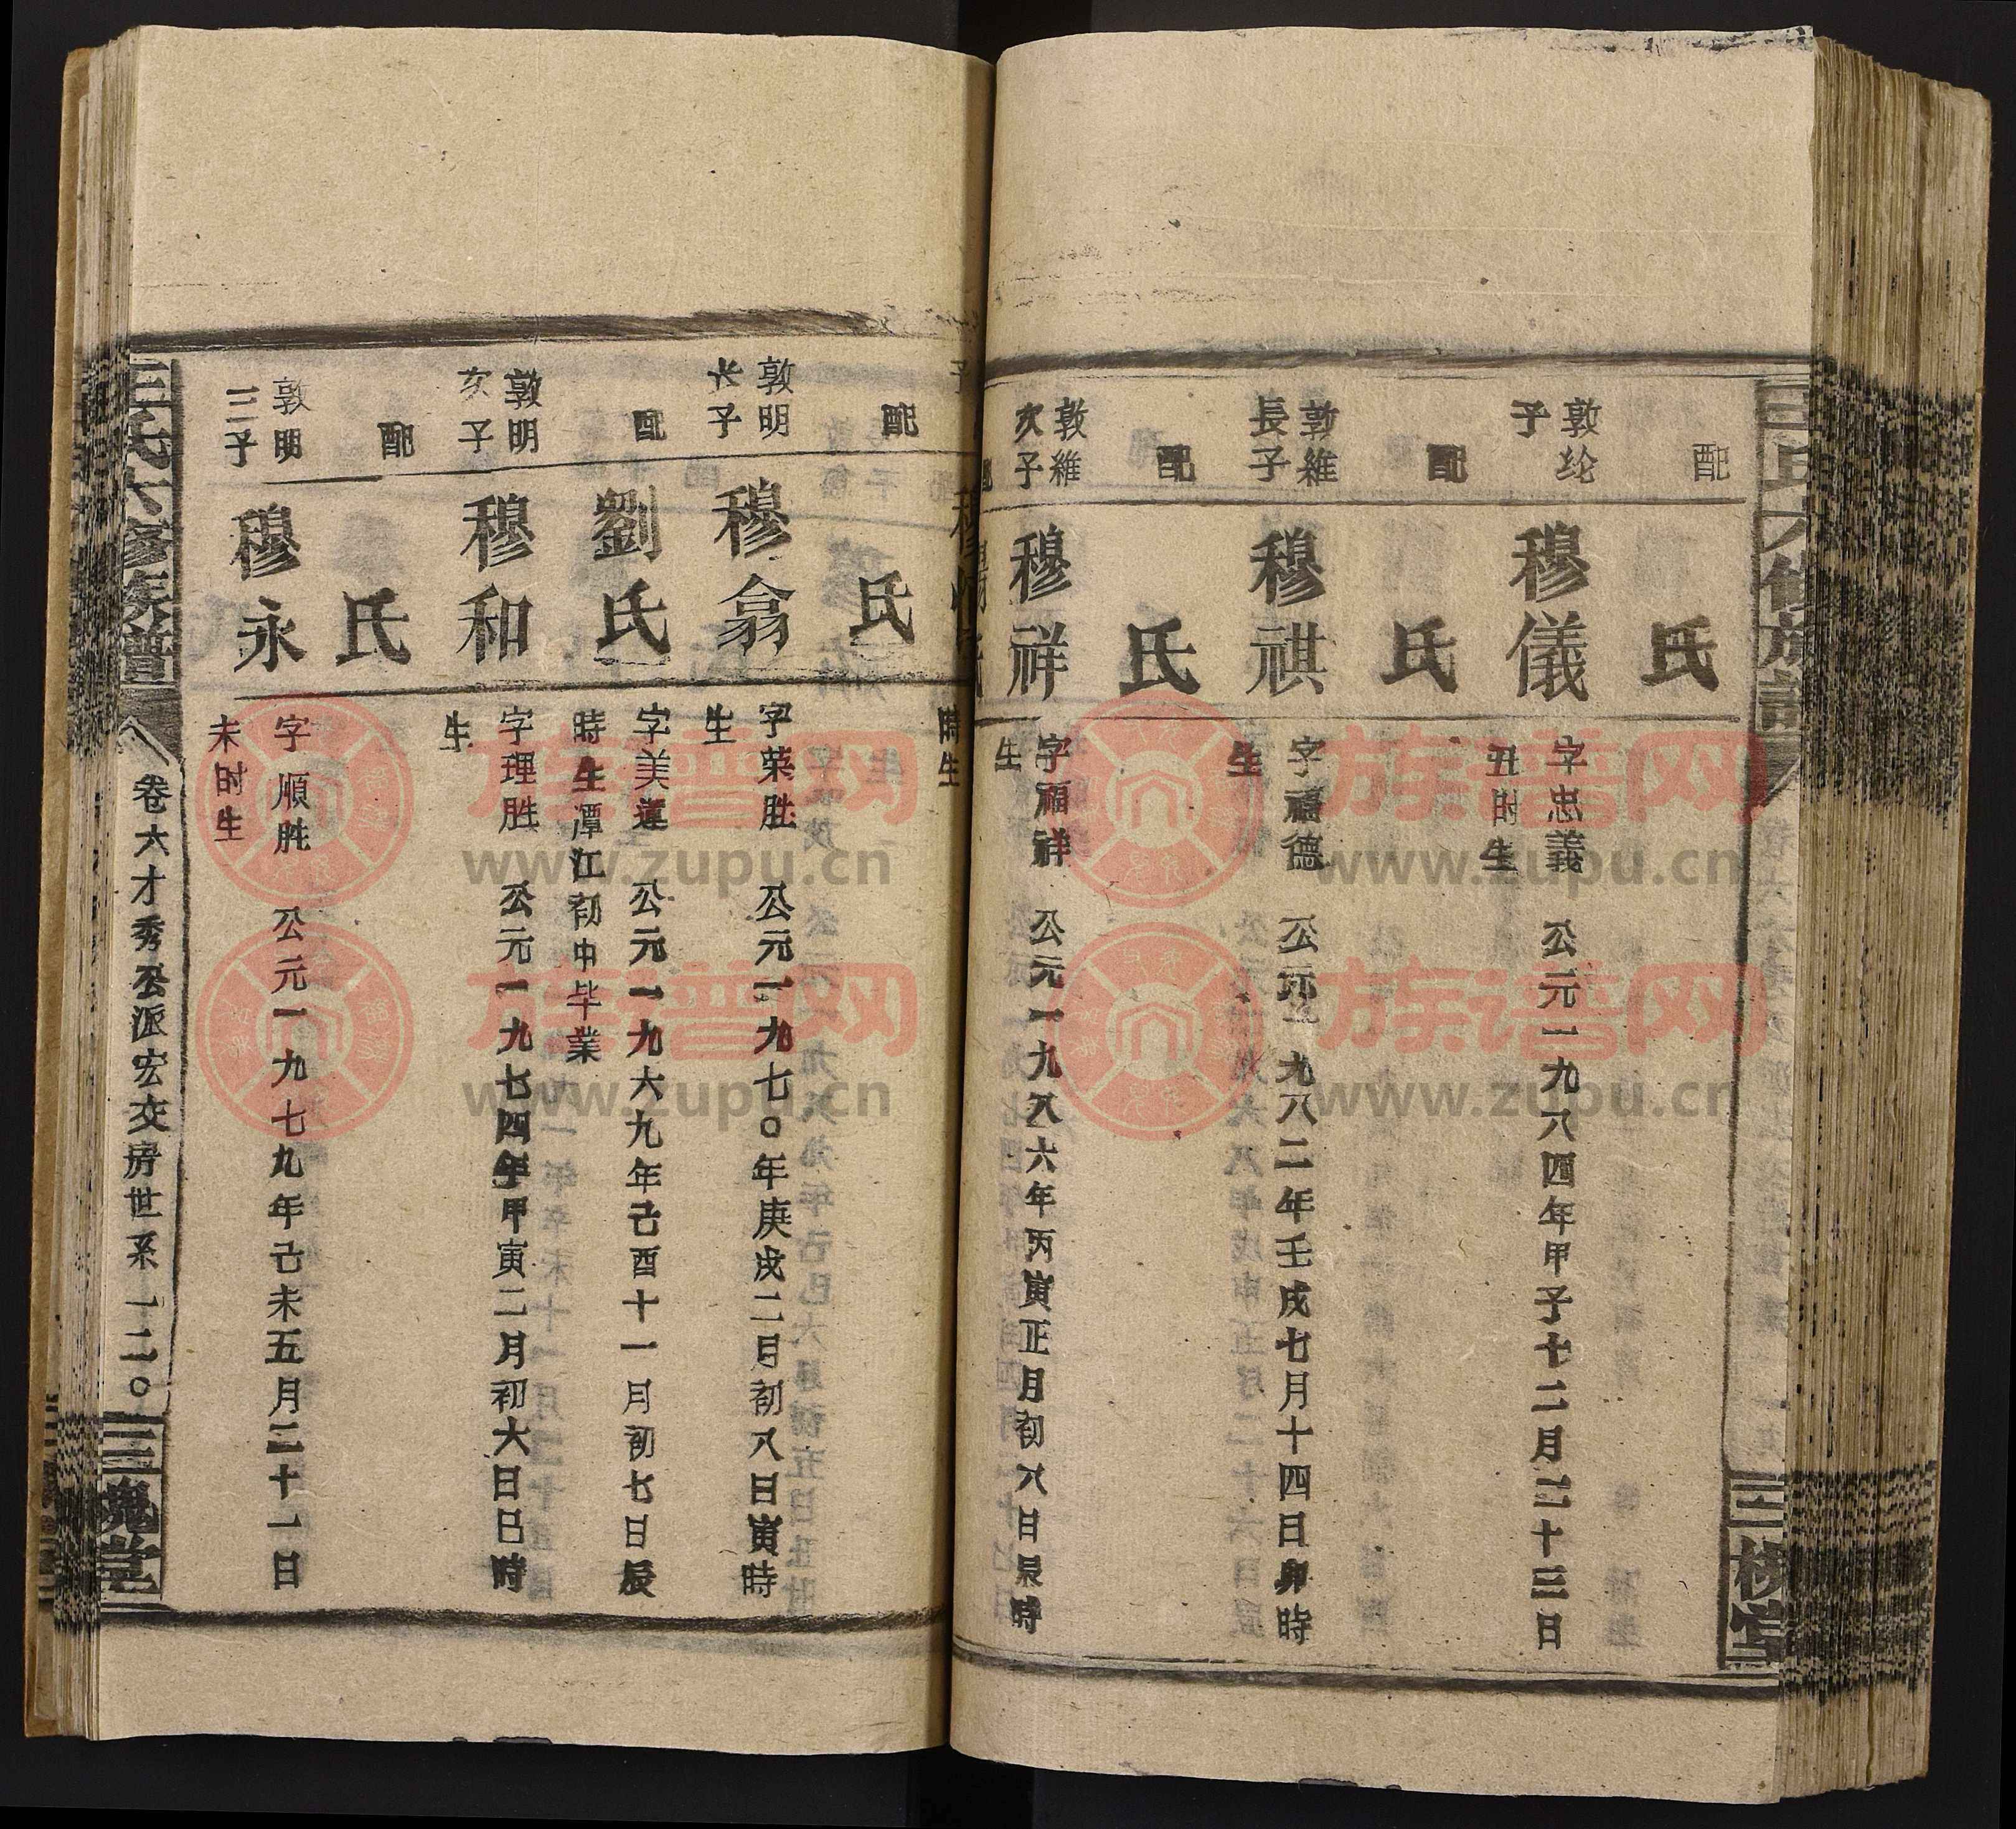 配
氏
敦纶
子
穆儀
字忠義 公元一九八四年甲子十二月二十三日
丑时生
配
氏
敦維
長子
穆祺
字福德 公元一九八二年壬戌七月十四日卯時
生
配
氏
敦維
次子
穆祥
字福祥 公元一九八六年丙寅正月初八日辰時
生
時生
配
氏
敦明
长子
穆翕
字荣胜 公元一九七〇年庚戌二月初八日寅時
生
配
劉氏
字美蓮 公元一九六九年己酉十一月初七日辰
時生潭江初中毕業
敦明
次子
穆和
字理胜 公元一九七四年甲寅二月初六日巳時
生
配
氏
敦明
三子
穆永
字順胜 公元一九七九年己未五月二十一日
未时生
王氏六修族譜
卷六才秀公派宏交房世系 一二〇
三槐堂
族谱网
www.zupu.cn
族谱网
www.zupu.cn
族谱网
www.zupu.cn
族谱网
www.zupu.cn